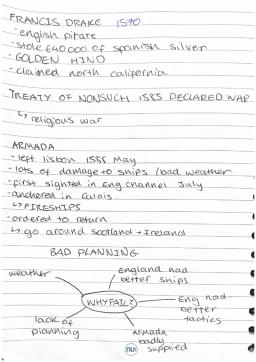 FRANCIS DRAKE 1570
- english pirate
- stole £40,000 of spanish silver
- GOLDEN HIND
- claimed north california
TREATY OF NONSUCH 1585 DECLARED WAR
↳ religious war
ARMADA
- left lisbon 1588 May
- lots of damage to ships / bad weather
- first sighted in Eng channel July
- anchored in Calais.
↳ FIRESHIPS
- ordered to return
↳ go around Scotland + Ireland
BAD PLANNING
weather
England had
better ships
WHY FAIL?
Eng had
better
tactics
lack of
planning
Armada
badly
supplied